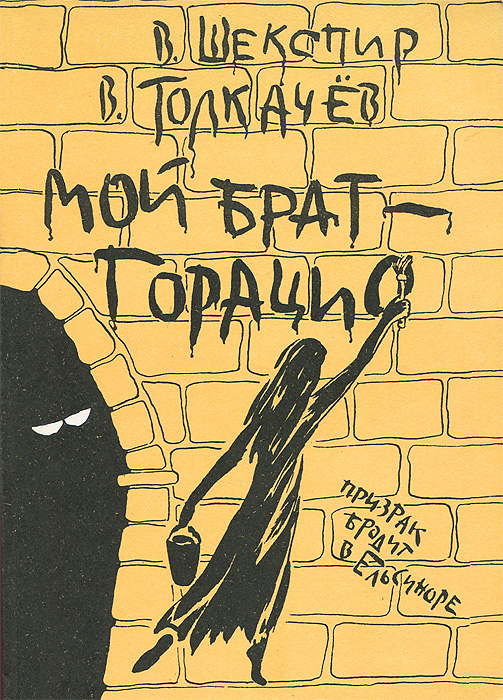 В. ШЕКСПИР
В. ТОЛКАЧЁВ
МОЙ БРАТ –
ГОРАЦИО
ПРИЗРАК
БРОДИТ
В ЕЛЬСИНОРЕ